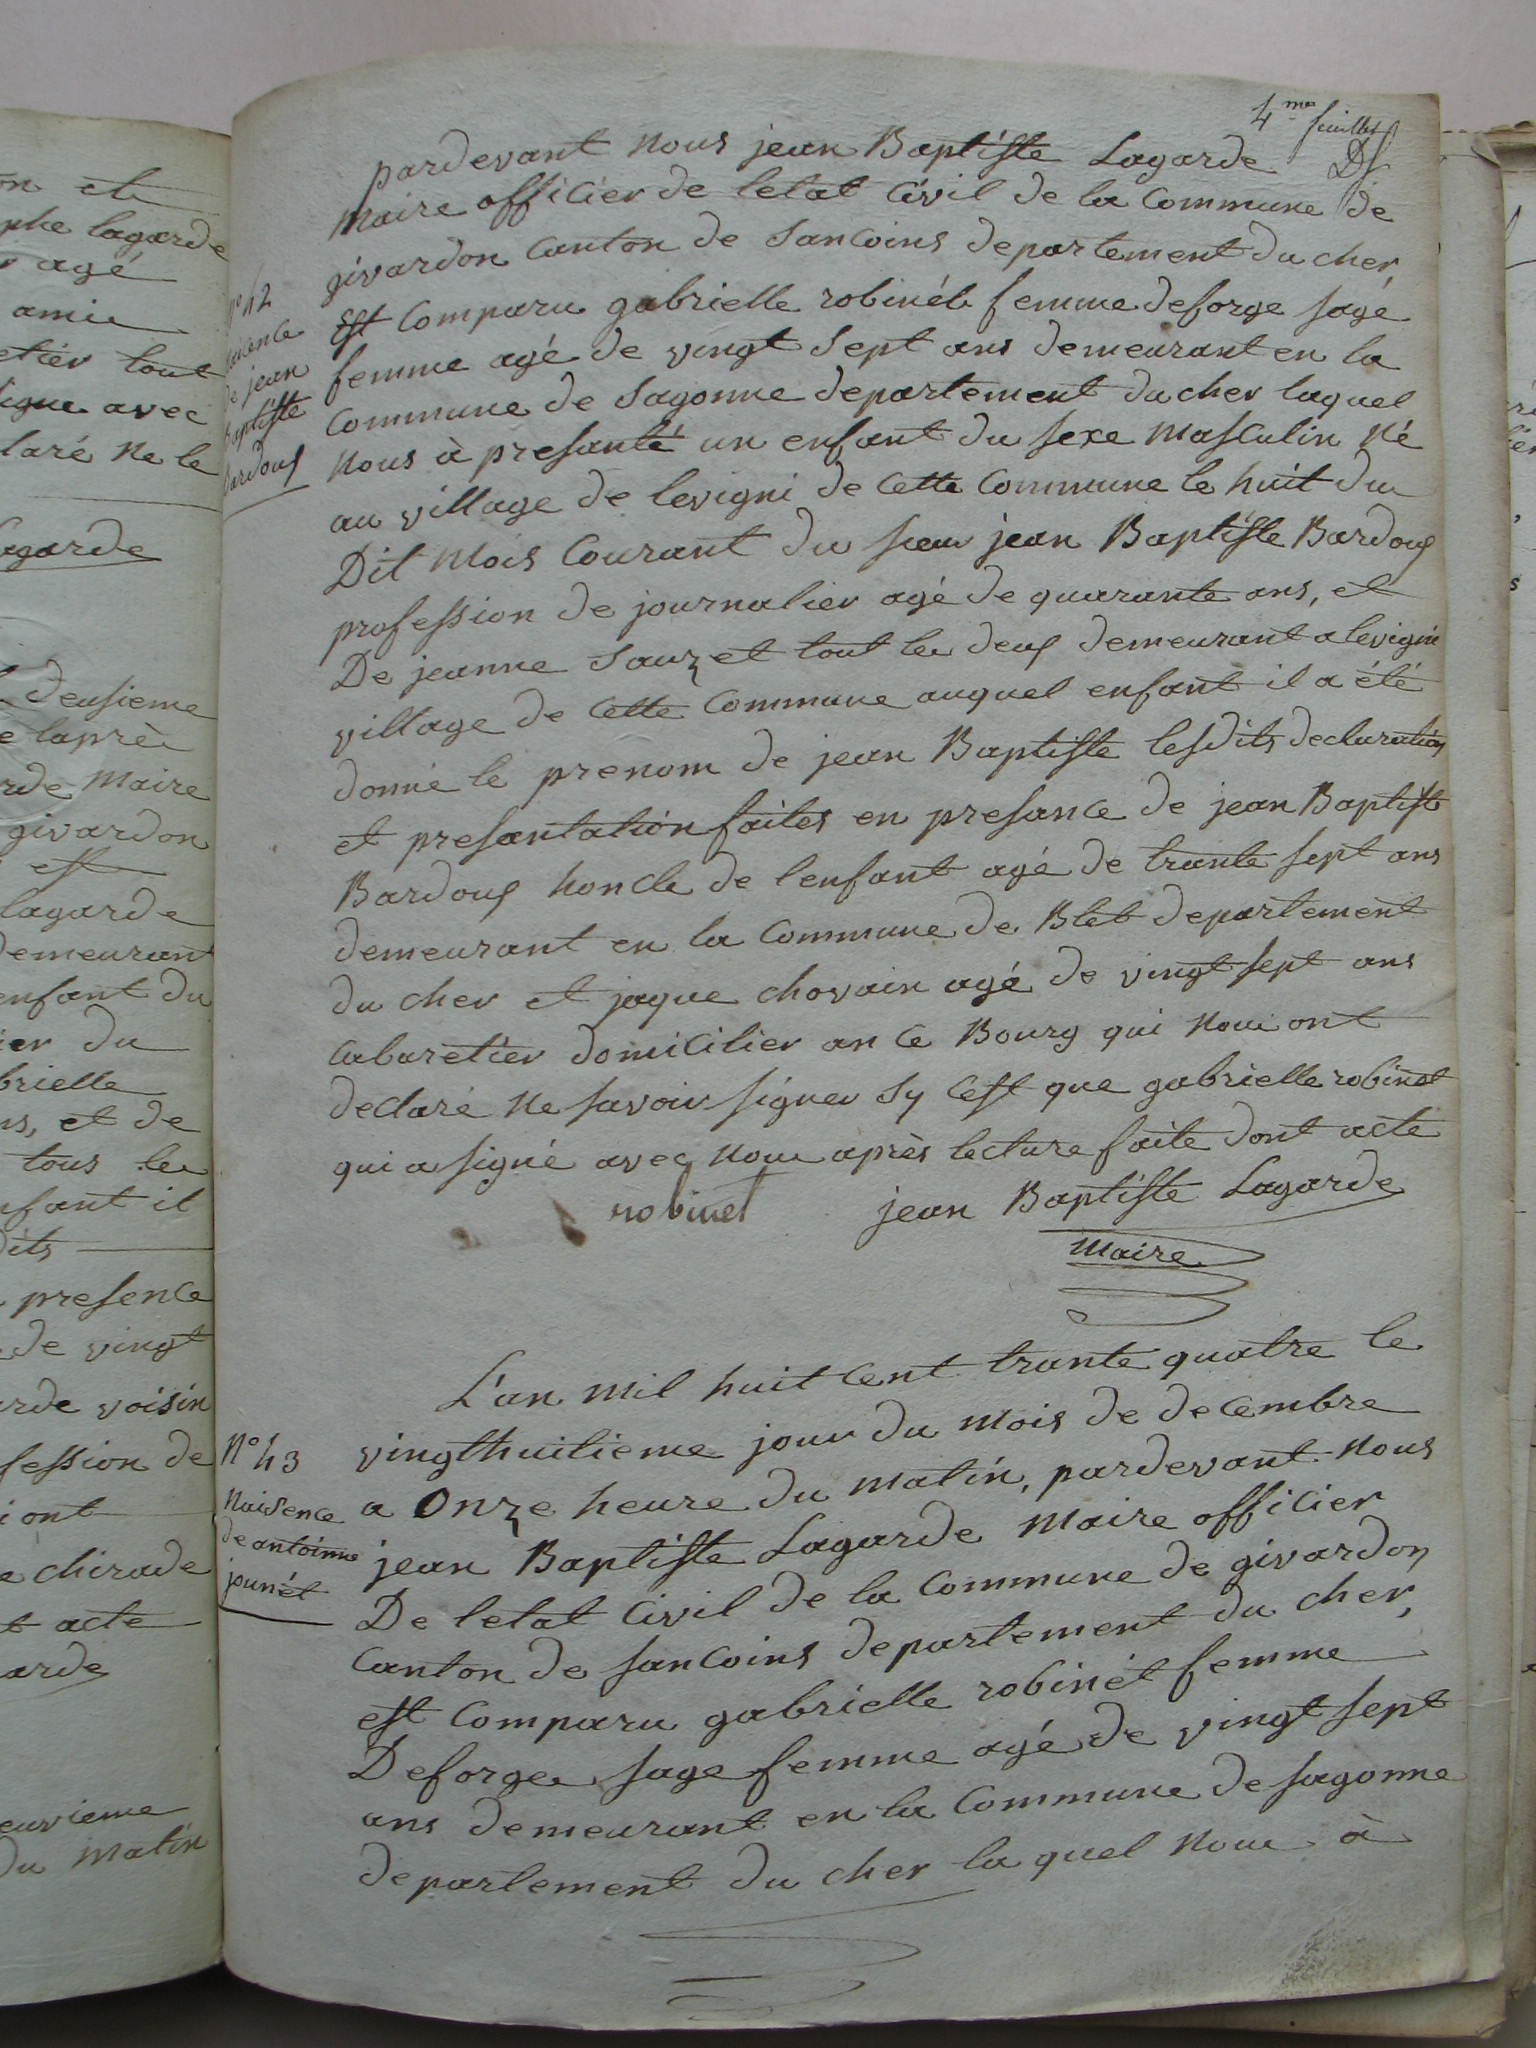 4.me feuillet
pardevant nous jean Baptiste Lagarde
maire officier de letat Civil de la Commune de
givardon Canton de Sancoins departement du cher
Est Comparu gabrielle robinét femme deforge sage
femme agé de vingt Sept ans demeurant en la
Commune de Sagonne departement du cher laquel
nous à presanté un enfant du sexe masculin né
au village de levigni de Cette Commune le huit du
Dit mois Courant du sieur jean Baptiste Bardoux
profession de journalier agé de quarante ans, et
De jeanne Sauzet tout les deux demeurant a levigni
village de Cette Commune auquel enfant il a été
donné le prenom de jean Baptiste lesdits declaration
et presantation faites en presance de jean Baptiste
Bardoux honcle de lenfant agé de trante sept ans
demeurant en la Commune de Blet departement
du cher et jaque chovain agé de vingt sept ans
Cabaretier domicilier an ce Bourg qui nous ont
declaré ne savoir signer Sy Cest que gabrielle robinet
qui a signé avec nous après lecture faite dont acte
robinet jean Baptiste Lagarde
maire
n° 42
de jean
Baptiste
Bardoux
L'an mil huit Cent trante quatre le
vingthuitieme jour du mois de decembre
a Onze heure du matin, pardevant nous
jean Baptiste Lagarde maire officier
De letat Civil de la Commune de givardon
Canton de sancoins departement du cher,
est Comparu gabrielle robinét femme
Deforges sage femme agé de vingt sept
ans demeurant en la Commune de sagonne
departement du cher la quel nous à
N° 43
Naisence
de antoinne
jounét
on et
phe lagarde
agé
amie
etier tout
signe avec
laré ne le
Lagarde
deusieme
laprès
rde Maire
givardon
est
lagarde
demeurant
enfant du
ier du
brielle
ns, et de
tous les
nfant il
dits
presence
de vingt
arde voisin
fession de
ont
chirade
t acte
arde
euvieme
du matin